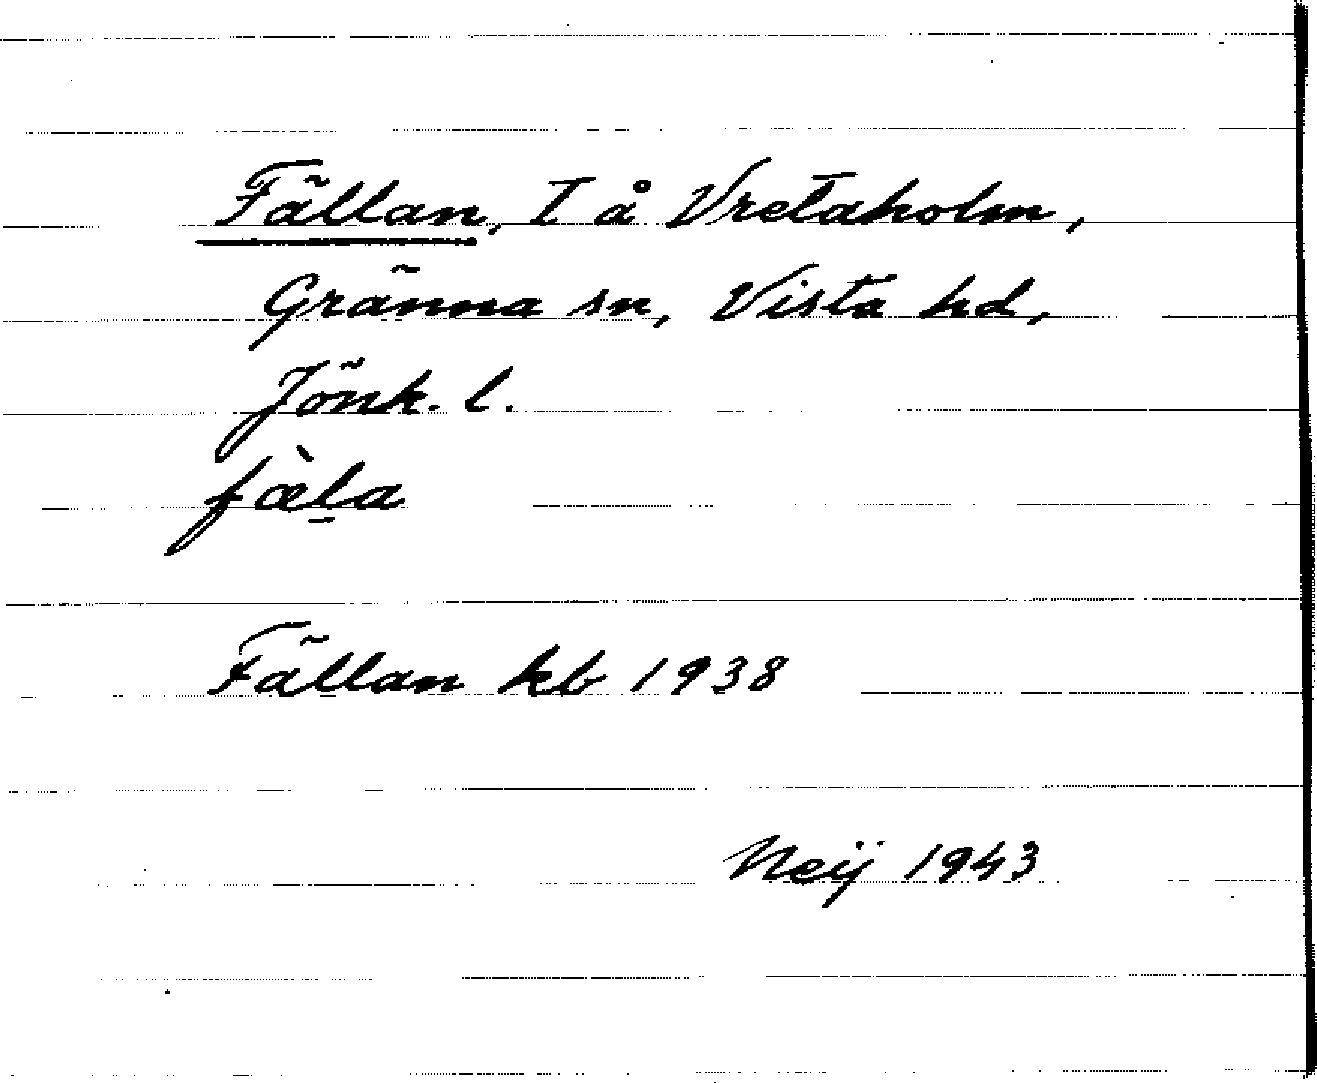 Fällan, T å Vretaholm,
Gränna sn, Vista hd,
Jönk. l.
fæ̀l̠a
Fällan kb 1938
Neij 1943